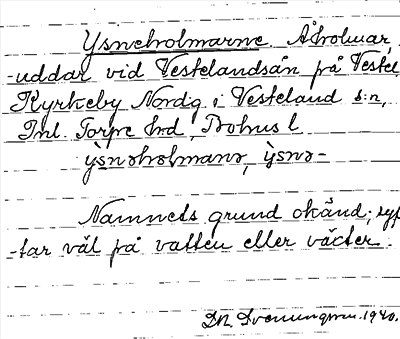 Ysneholmarne. Åholmar,
-uddar vid Vestelandsån på Vestel
Kyrkeby Nordg, i Vesteland s:n,
Inl. Torpe hd, Bohus l.
ỳsnəholmanə, ỳsnə-
Namnets grund okänd; syf
-tar väl på vatten eller växter.
1940.